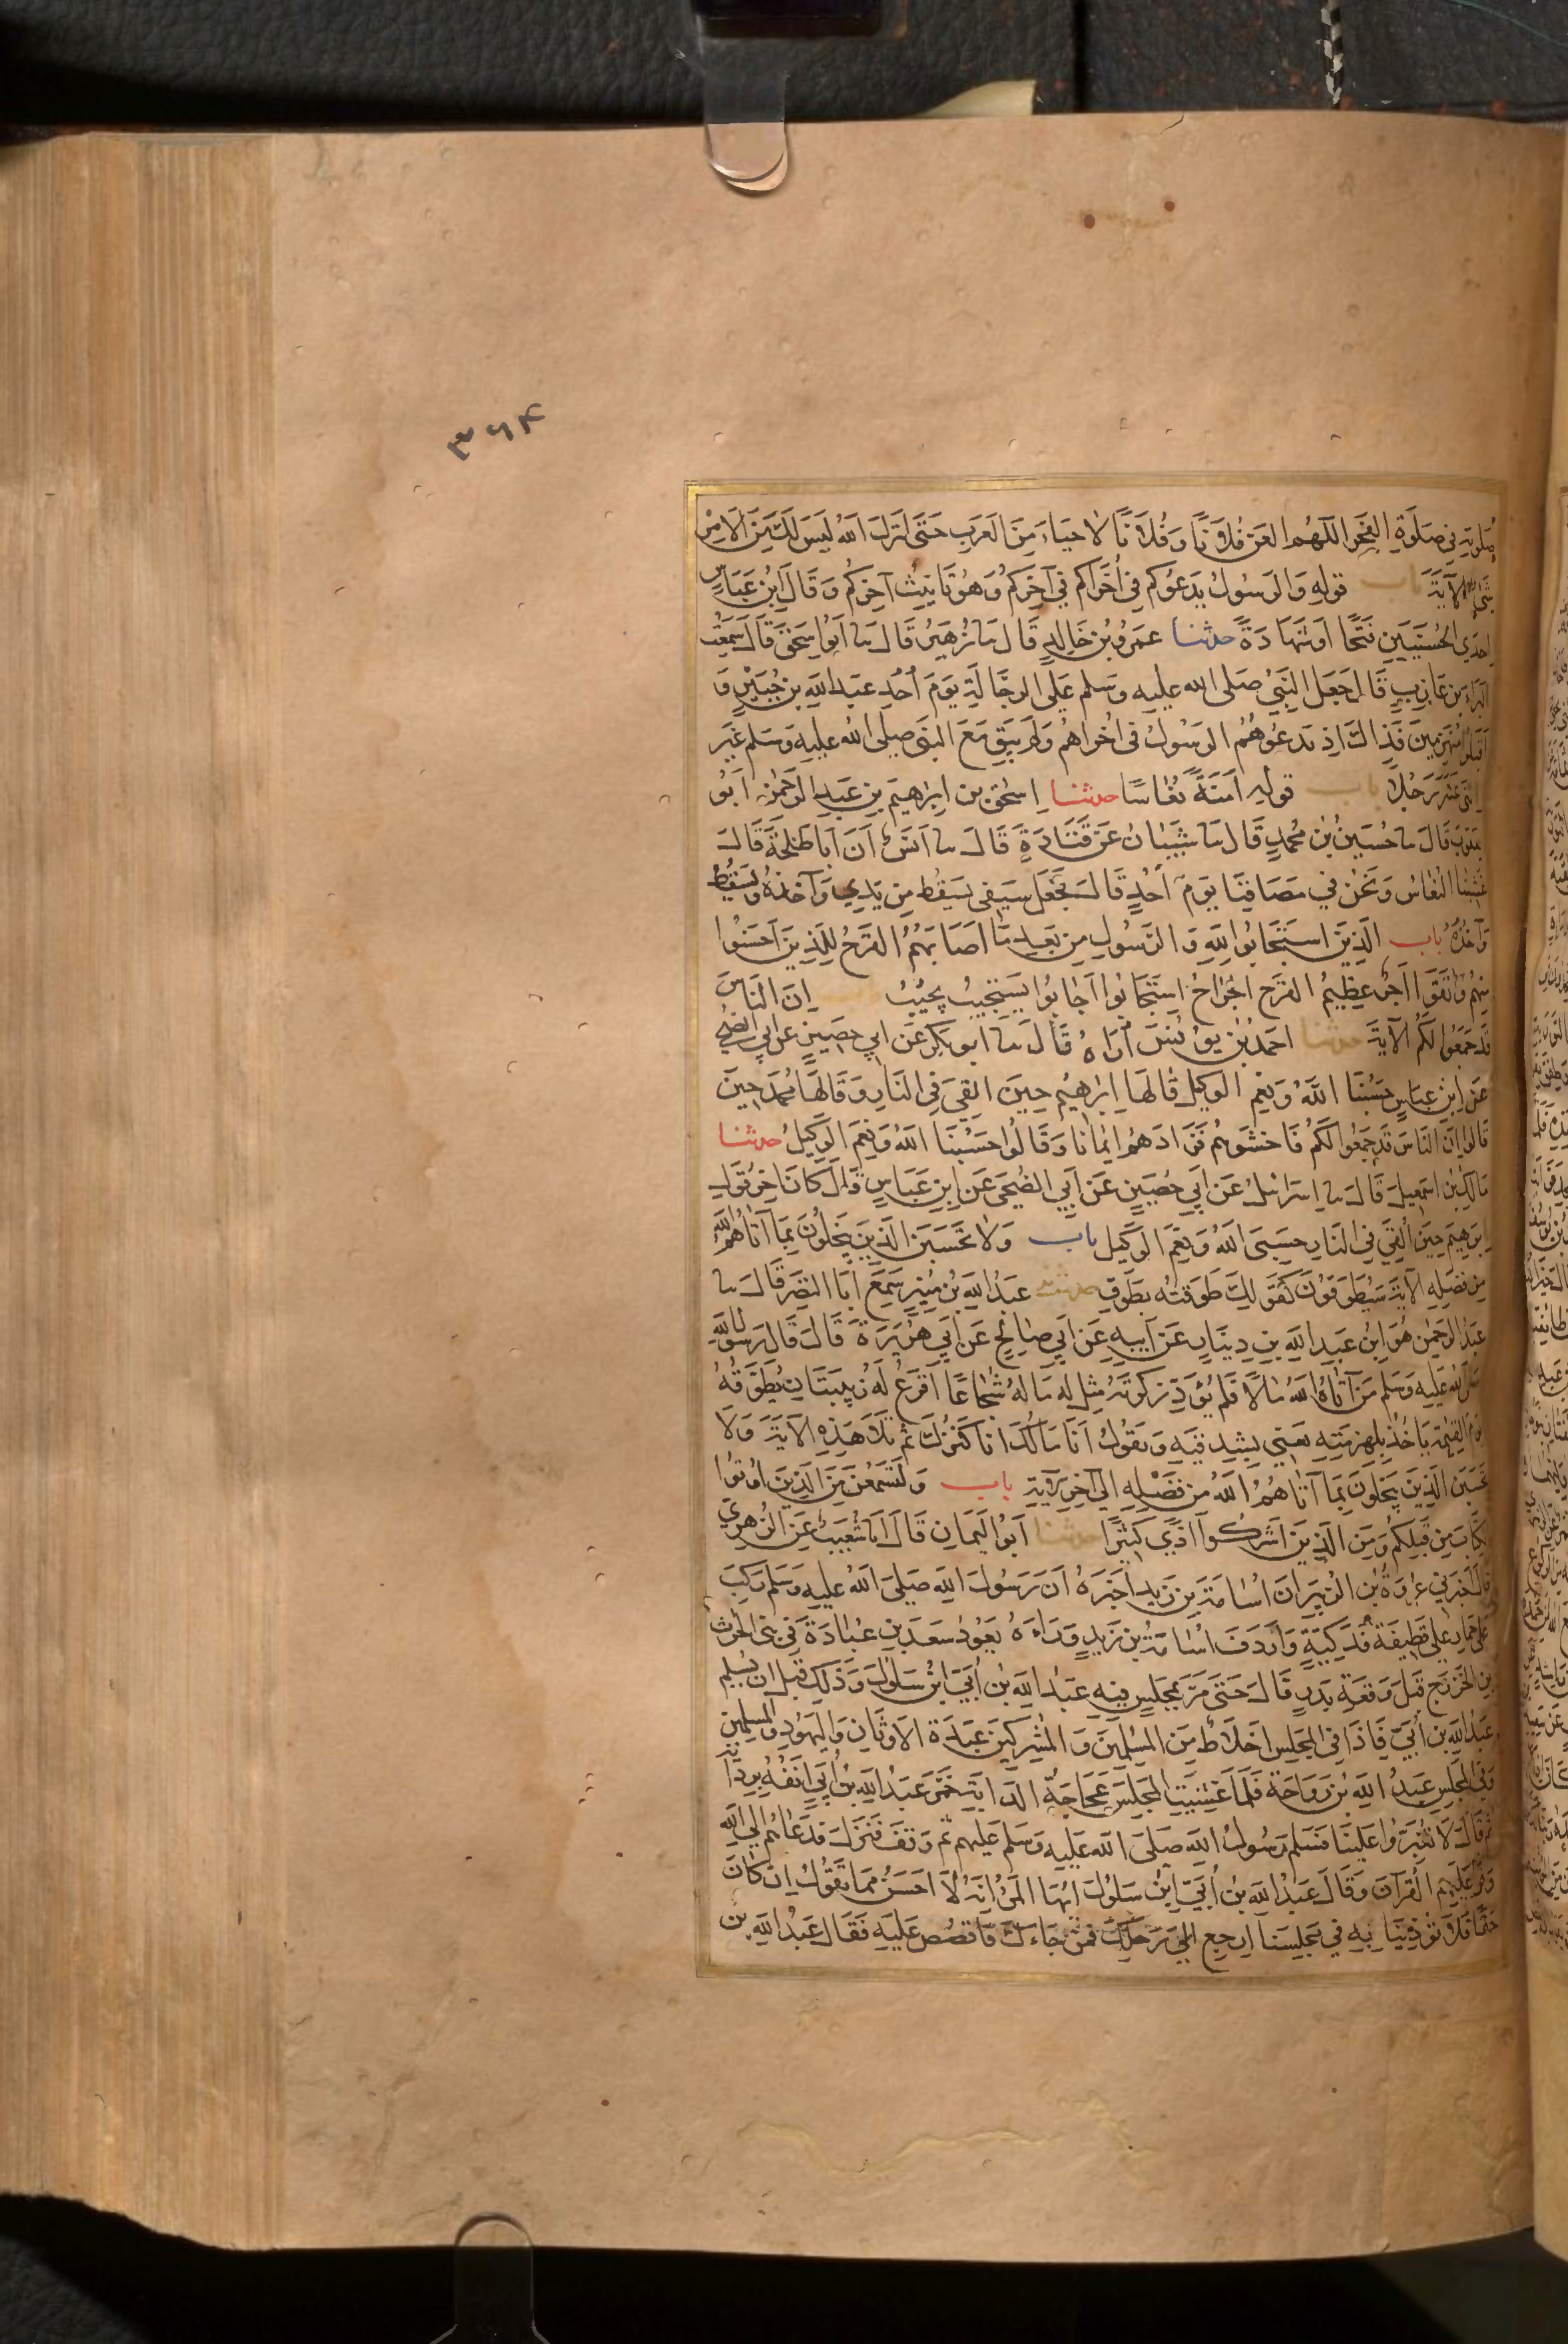 ٣٦٤
صلوته في صلوة الفجر اللهم العن فلانا وفلانا لاحياء من العرب حتى انزل الله ليس لك من الامر
شيء الآية باب قوله والرسول يدعوكم في أخراكم في آخركم وهو تانيث آخركم وقال ابن عباس
احدى الحسنيين فتحا او شهادة حدثنا عمرو بن خالد قال نا زهير قال نا ابو اسحق قال سمعت
البراء بن عازب قال جعل النبي صلى الله عليه وسلم على الرجالة يوم أحد عبد الله بن جبير و
اقبلوا منهزمين فذاك اذ يدعوهم الرسول في اخراهم ولم يبق مع النبي صلى الله عليه وسلم غير
اثنى عشر رجلا باب قوله امنة نعاسا حدثنا اسحق بن ابراهيم بن عبد الرحمن ابو
يعقوب قال نا حسين بن محمد قال نا شيبان عن قتادة قال نا انس ان ابا طلحة قال
غشينا النعاس ونحن في مصافنا يوم أحد قال فجعل سيفي يسقط من يدي وآخذه ويسقط
وآخذه باب الذين استجابوا لله والرسول من بعد ما اصابهم القرح للذين احسنوا
منهم واتقوا اجر عظيم القرح الجراح استجابوا اجابوا يستجيب يجيب ان الناس
قد جمعوا لكم الآية حدثنا احمد بن يونس أراه قال نا ابو بكر عن ابي حصين عن ابي الضحى
عن ابن عباس حسبنا الله ونعم الوكيل قالها ابراهيم حين القي في النار وقالها محمد حين
قالوا ان الناس قد جمعوا لكم فاخشوهم فزادهم ايمانا وقالوا حسبنا الله ونعم الوكيل حدثنا
مالك بن اسمعيل قال نا اسرائيل عن ابي حصين عن ابي الضحى عن ابن عباس قال كان اخر قول
ابرهيم حين ألقي في النار حسبي الله ونعم الوكيل باب ولا تحسبن الذين يبخلون بما آتاهم الله
من فضله الآية سيطوقون كقولك طوقته بطوق حدثنى عبد الله بن منير سمع ابا النضر قال نا
عبد الرحمن هو ابن عبد الله بن دينار عن ابيه عن ابي صالح عن ابي هريرة قال قال رسول الله
صلى الله عليه وسلم من آتاه الله مالا فلم يؤد زكوته مثل له ماله شجاعا اقرع له زبيبتان يطوقه
يوم القيمة ياخذ بلهزمتيه يعني بشدقيه ويقول انا مالك انا كنزك ثم تلا هذه الآية ولا
تحسبن الذين يبخلون بما آتاهم الله من فضله الى آخر الآية باب ولتسمعن من الذين اوتوا
الكتاب من قبلكم ومن الذين اشركوا اذى كثيرا حدثنا ابو اليمان قال انا شعيب عن الزهري
قال اخبرني عروة بن الزبير ان اسامة بن زيد اخبره ان رسول الله صلى الله عليه وسلم ركب
على حمار على قطيفة فدكية واردف اسامة بن زيد وراءه يعود سعد بن عبادة في بني الحرث
بن الخزرج قبل وقعة بدر قال حتى مر بمجلس فيه عبد الله بن أبي ابن سلول وذلك قبل ان يسلم
عبد الله بن أبي فاذا في المجلس اخلاط من المسلمين والمشركين عبدة الاوثان واليهود والمسلمين
وفي المجلس عبد الله بن رواحة فلما غشيت المجلس عجاجة الدابة خمر عبد الله بن أبي انفه بردائه
ثم قال لا تغبروا علينا فسلم رسول الله صلى الله عليه وسلم عليهم ثم وقف فنزل فدعاهم الى الله
وقرأ عليهم القرآن وقال عبد الله بن أبي ابن سلول ايها المرء انه لا احسن مما تقول ان كان
حقا فلا تؤذينا به في مجلسنا ارجع الى رحلك فمن جاءك فاقصص عليه فقال عبد الله بن